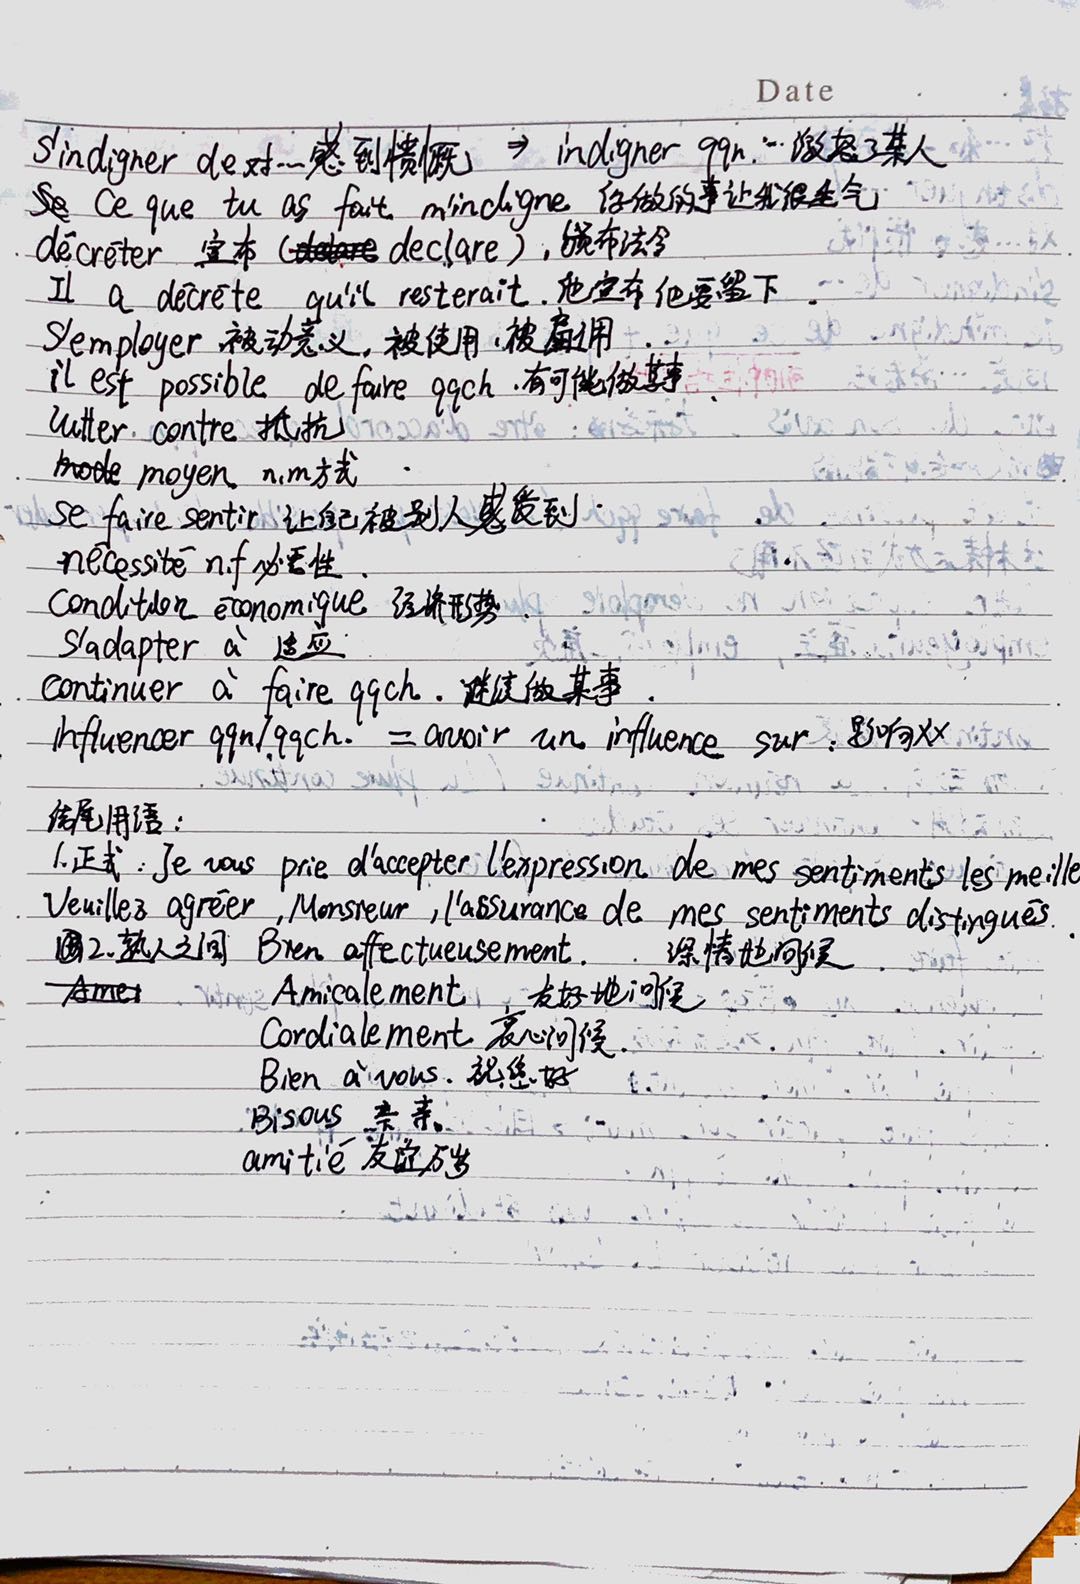 Date
S'indigner de 对…感到愤慨 ⇒ indigner qqn. … 激怒了某人
Ce que tu as fait m'indigne 你做的事让我很生气
décréter 宣布 (declare), 颁布法令
Il a décrété qu'il resterait. 他宣布他要留下.
S'employer 被动意义, 被使用, 被雇用.
il est possible de faire qqch. 有可能做某事.
lutter contre 抵抗
moyen n.m 方式
se faire sentir 让自己被别人感受到
nécessité n.f 必要性.
Condition économique 经济形势.
S'adapter à 适应
continuer à faire qqch. 继续做某事.
influencer qqn/qqch. = avoir un influence sur: 影响xx
结尾用语:
1.正式: Je vous prie d'accepter l'expression de mes sentiments les meille
Veuillez agréer, Monsieur, l'assurance de mes sentiments distingués.
2.熟人之间 Bien affectueusement. 深情地问候.
Amicalement 友好地问候
Cordialement 衷心问候.
Bien à vous. 祝您好
Bisous 亲亲。
amitié 友谊万岁